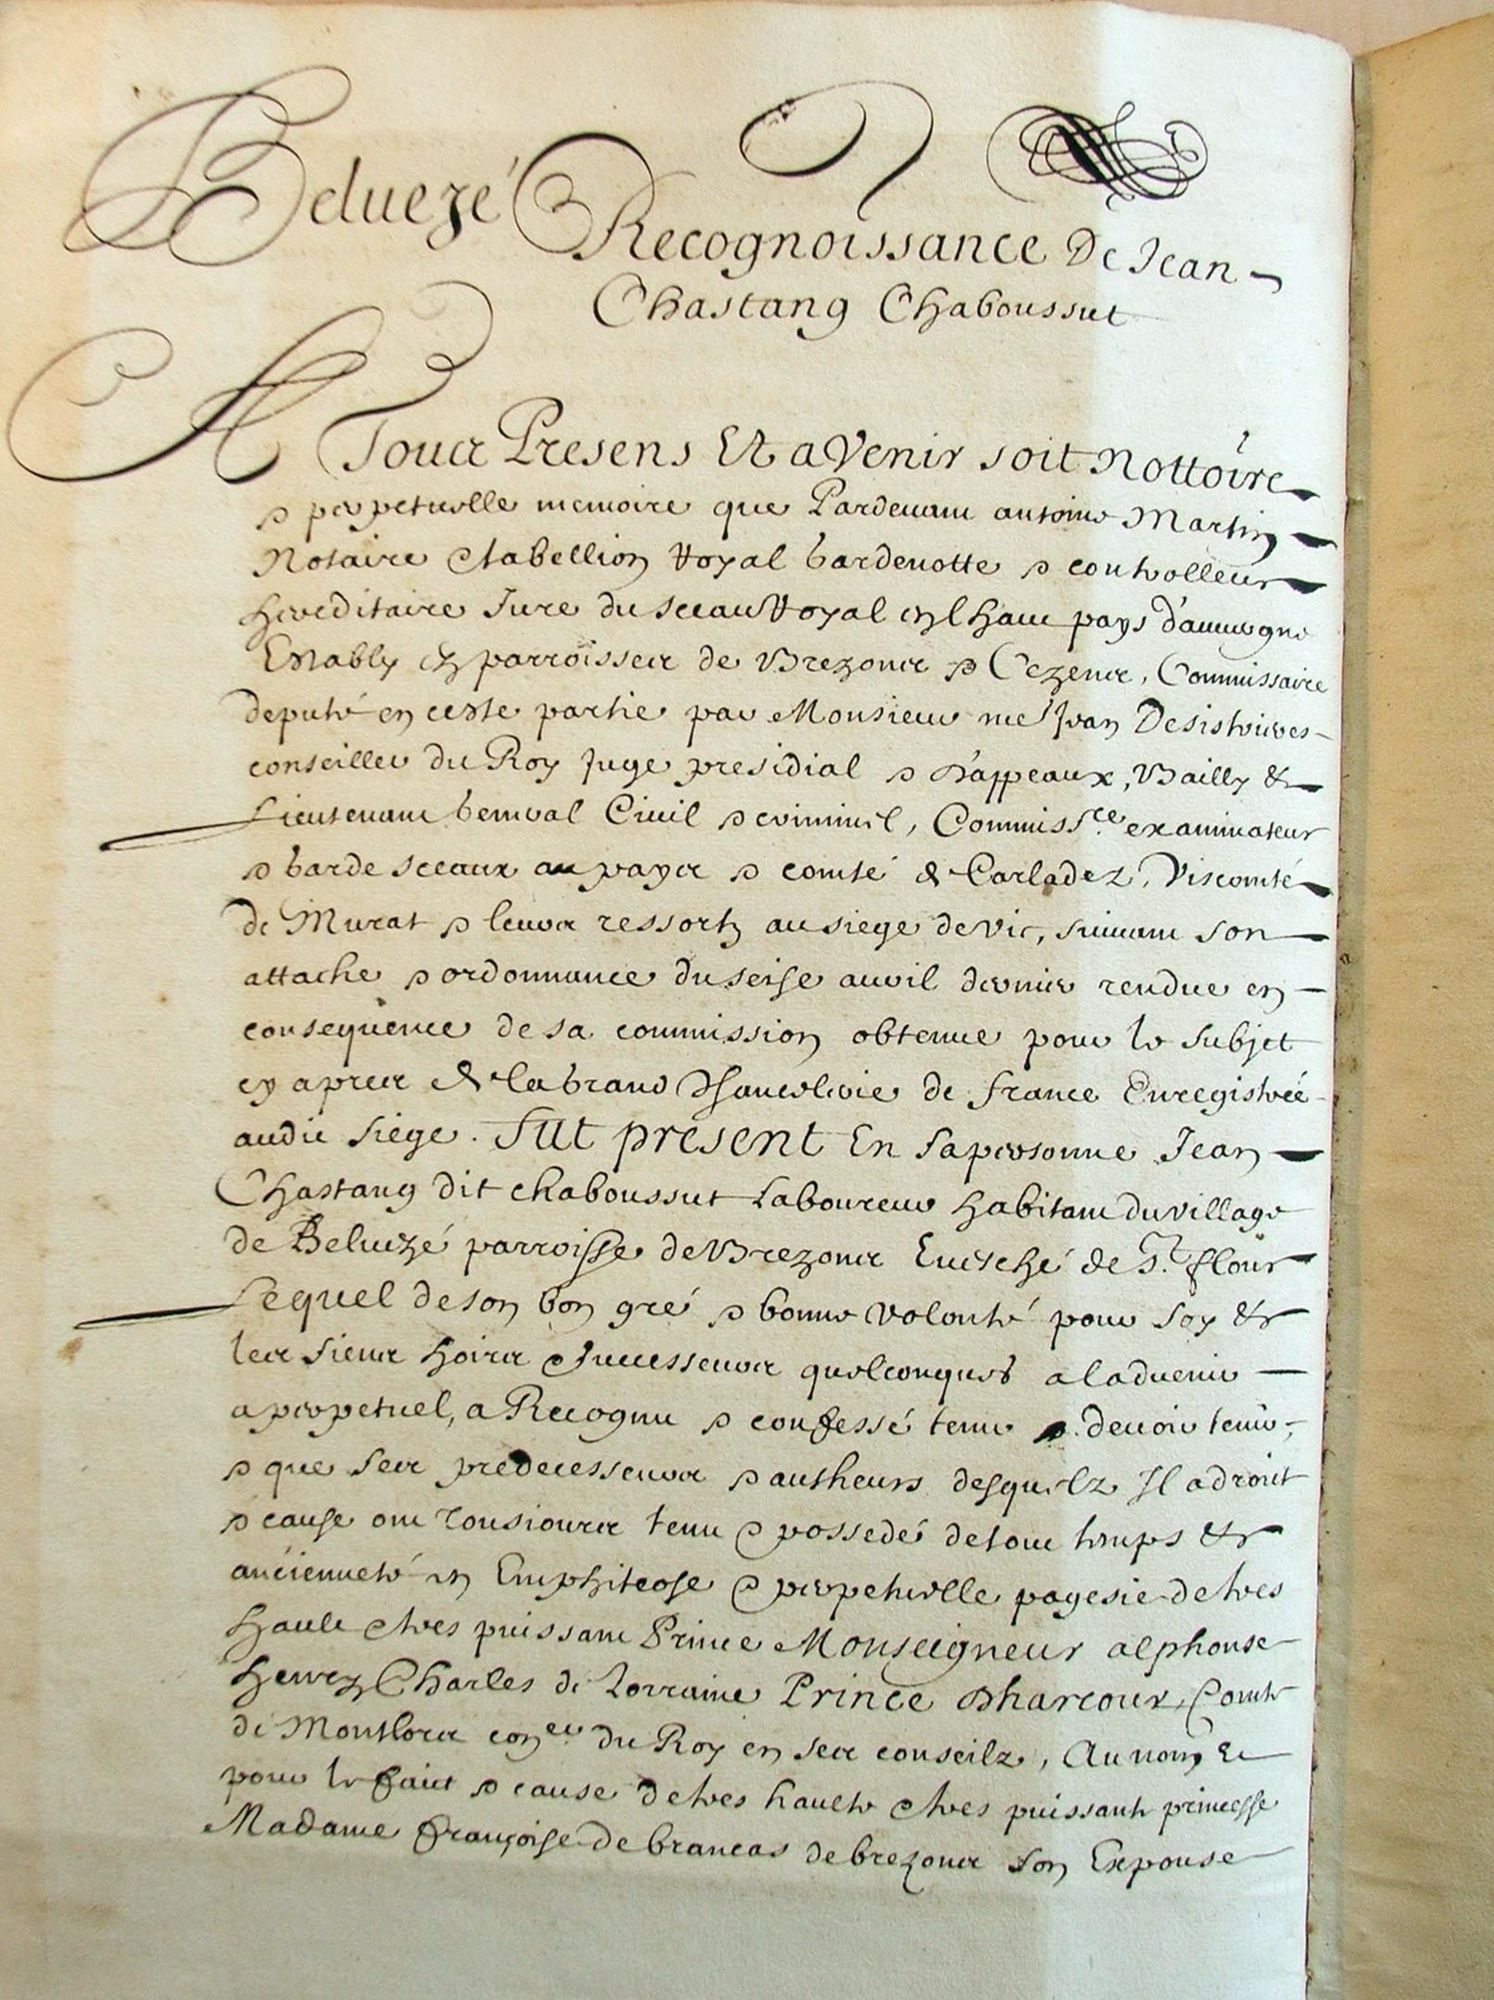 Beluezé
Recognoissance De Jean
Chastang Chaboussut
A Tous Presens Et a Venir soit Nottoire
& perpetuelle memoire que Pardeuant antoine Martin
Notaire & tabellion Royal gardenotte & controlleur
hereditaire Juré du sceau Royal en lhaut pays d'auuergne
Estably es parroisses de Brezons & Cezens, Commissaire
deputé en ceste partie par Monsieur me Jean Desistrieres
conseiller du Roy Juge presidial & d'appeaux, Bailly &
Lieutenant general Ciuil & criminel, Commiss.re examinateur
& garde sceaux au pays & comté de Carladez, Viscomté
de Murat & leurs ressorts au siege de Vic, suiuant son
attache & ordonnance du seise auril dernier rendue en
consequence de sa commission obtenue pour le subjet
cy apres de la grand Chancelerie de france Enregistrée
audit siege. Fut present En sa personne Jean
Chastang dit chaboussut Laboureur habitant du village
de Beluezé parroisse de Brezons Euesché de St. flour
Lequel de son bon gré & bonne volonté pour soy &
les siens hoirs & successeurs quelconques a laduenir
a perpetuel, a Recognu & confessé tenir & deuoir tenir,
& que ses predecesseurs & autheurs desquelz Il a droit
& cause ont tousiours tenu & possedé de tout temps &
ancienneté en Emphiteose & perpetuelle pagesie de tres
haut & tres puissant Prince Monseigneur alphonse
henry Charles de Lorraine Prince dharcour, Comte
de Montlors con.er du Roy en ses conseilz, Au nom &
pour le fait & cause de tres haute & tres puissante princesse
Madame françoise de brancas de brezons son Espouse